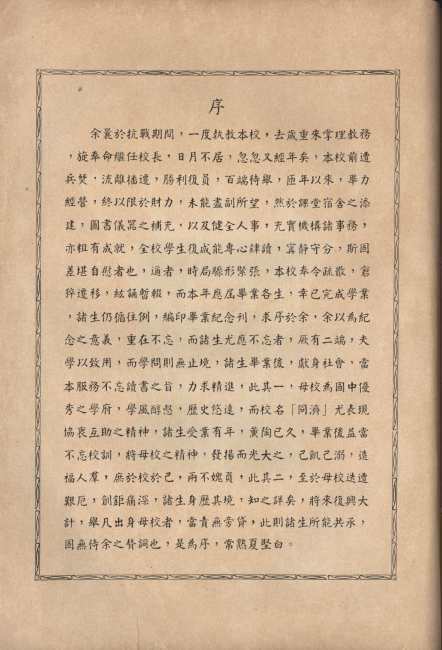 序
余曩於抗戰期間，一度執教本校，去歲重來掌理教務
，旋奉命繼任校長，日月不居，忽忽又經年矣，本校前遭
兵燹，流離播遷，勝利復員，百端待舉，匝年以來，畢力
經營，終以限於財力，未能盡副所望，然於課堂宿舍之添
建，圖書儀器之補充，以及健全人事，充實機構諸事務，
亦粗有成就，全校學生復咸能專心肄讀，寗靜守分，斯固
差堪自慰者也，邇者，時局驟形緊張，本校奉令疏散，倉
猝遷移，絃誦暫輟，而本年應屆畢業各生，幸已完成學業
，諸生仍循往例，編印畢業紀念刊，求序於余，余以為紀
念之意義，重在不忘，而諸生尤應不忘者，厥有二端，夫
學以致用，而學問則無止境，諸生畢業後，獻身社會，當
本服務不忘讀書之旨，力求精進，此其一，母校為國中優
秀之學府，學風醇懋，歷史悠遠，而校名「同濟」尤表現
協衷互助之精神，諸生受業有年，薰陶已久，畢業後益當
不忘校訓，將母校之精神，發揚而光大之，己飢己溺，造
福人羣，庶於校於己，兩不媿負，此其二，至於母校迭遭
艱厄，創鉅痛深，諸生身歷其境，知之詳矣，將來復興大
計，舉凡出身母校者，當責無旁貸，此則諸生所能共承，
固無待余之贅詞也，是為序，常熟夏堅白。